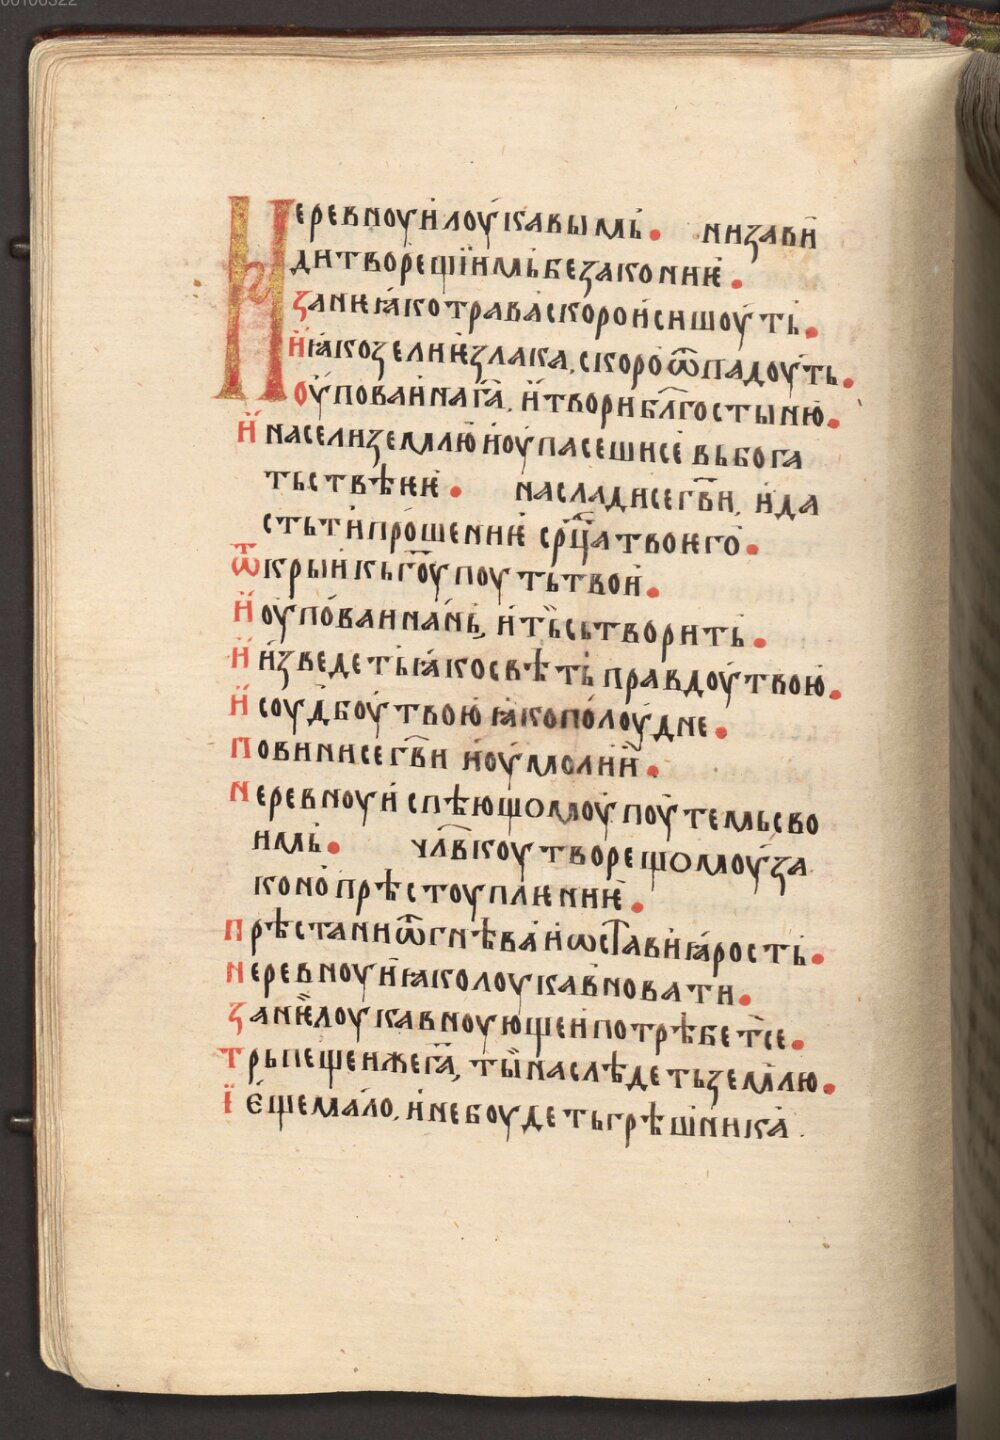 Не ревноуи лоукавымь. ни зави
ди творещіимь безакониѥ.
зане ꙗко трава скоро исишоуть.
и ꙗко зелиѥ злака, скоро ѿпадоуть.
оуповаи на га҃, и твори бл҃гостыню.
и насели землю и оупасеши се вь бога
тьствѣ ѥѥ. наслади се гв҃и, и да
сть ти прошениѥ ср҃ца твоѥго.
ѿкрыи кь гоу҃ поуть твои.
и оуповаи на нь, и ть сьтворить.
и изведеть ꙗко свѣть правдоу твою.
и соудбоу твою ꙗко полоудне.
повини се гв҃и и оумоли и.
не ревноуи спѣющомоу поутемь сво
имь. чл҃вкоу творещомоу за
коно прѣстоупл꙼ѥниѥ.
прѣстани ѿ гнѣва и ѡстави ꙗрость.
не ревноуи ꙗко лоукавновати.
зане лоукавноующеи потрѣбет се.
трьпещеи же га҃, ты наслѣдеть землю.
ї еще мало, и не боудеть грѣшника.